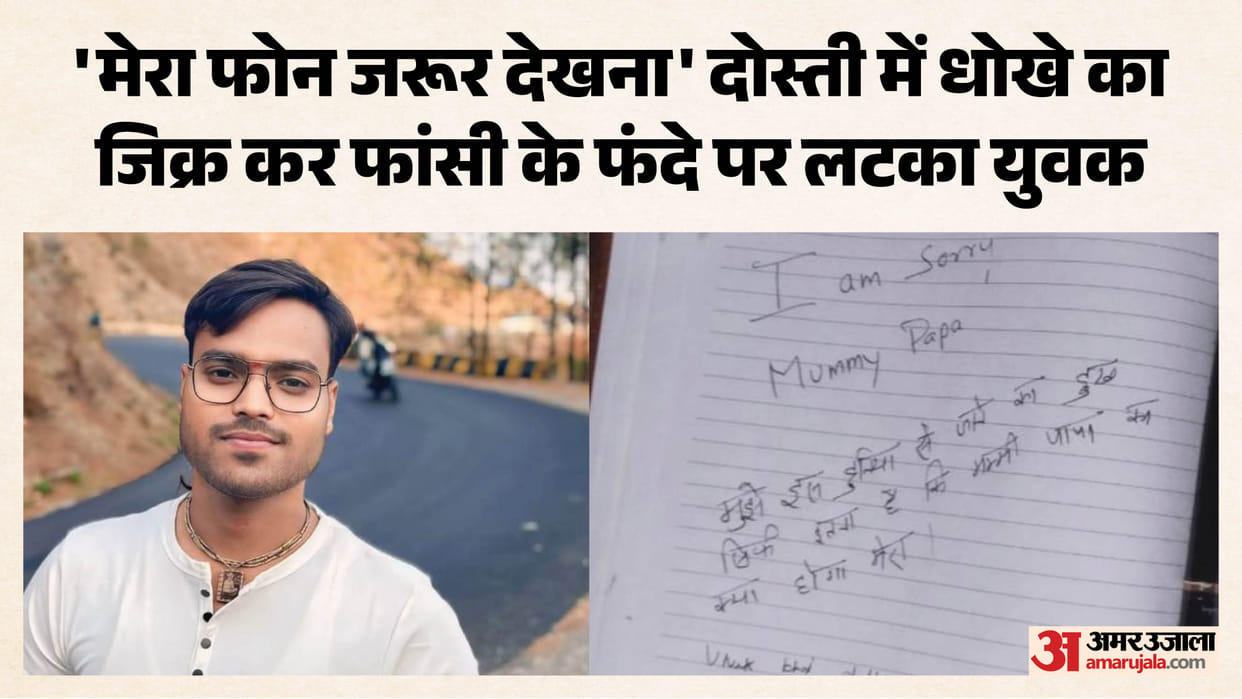 'मेरा फोन जरूर देखना' दोस्ती में धोखे का
जिक्र कर फांसी के फंदे पर लटका युवक
I am Sorry
Mummy Papa
मुझे इस दुनिया से जाने का दुख
सिर्फ इतना है कि मम्मी पापा का
क्या होगा मेरा।
अमर उजाला
amarujala.com